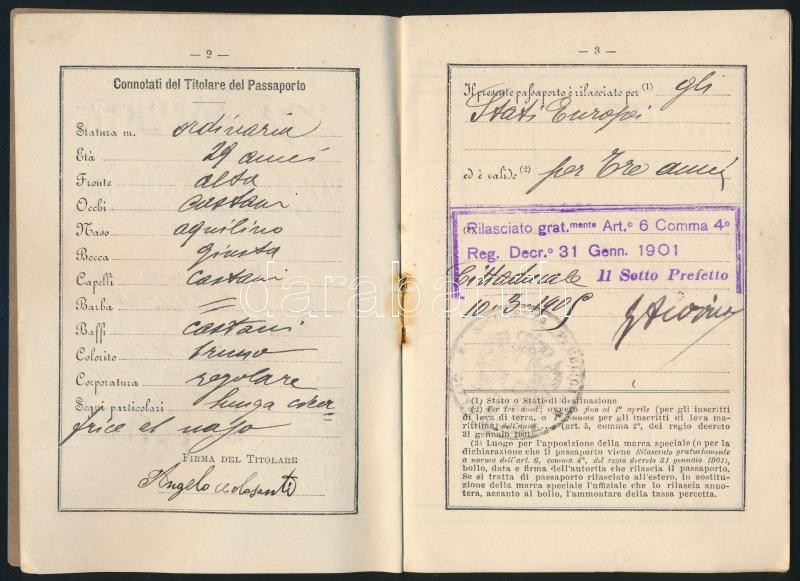 — 2 —
Connotati del Titolare del Passaporto
Statura m. ordinaria
Età 29 anni
Fronte alta
Occhi castani
Naso aquilino
Bocca giusta
Capelli castani
Barba =
Baffi castani
Colorito bruno
Corporatura regolare
Segni particolari lunga cica=
trice al naso
FIRMA DEL TITOLARE
Angelo
— 3 —
Il presente passaporto è rilasciato per (1) gli
Stati Europei
ed è valido (2) per tre anni
(3)
Rilasciato grat.mente Art.o 6 Comma 4o
Reg. Decr.o 31 Genn. 1901
Cittaducale Il Sotto Prefetto
10-3-1905
(1) Stato o Stati di destinazione
(2) Per tre anni; ovvero fino al 1° aprile (per gli inscritti
di leva di terra, o 1° gennaio per gli inscritti di leva ma-
rittima) dell'anno .... (art. 5, comma 2°, del regio decreto
31 gennaio 1901).
(3) Luogo per l'apposizione della marca speciale (o per la
dichiarazione che il passaporto viene Rilasciato gratuitamente
a norma dell'art. 6, comma 4°, del regio decreto 31 gennaio 1901),
bollo, data e firma dell'autorità che rilascia il passaporto.
Se si tratta di passaporto rilasciato all'estero, in sostitu-
zione della marca speciale l'uffiziale che lo rilascia anno-
terà, accanto al bollo, l'ammontare della tassa percetta.
darabanth